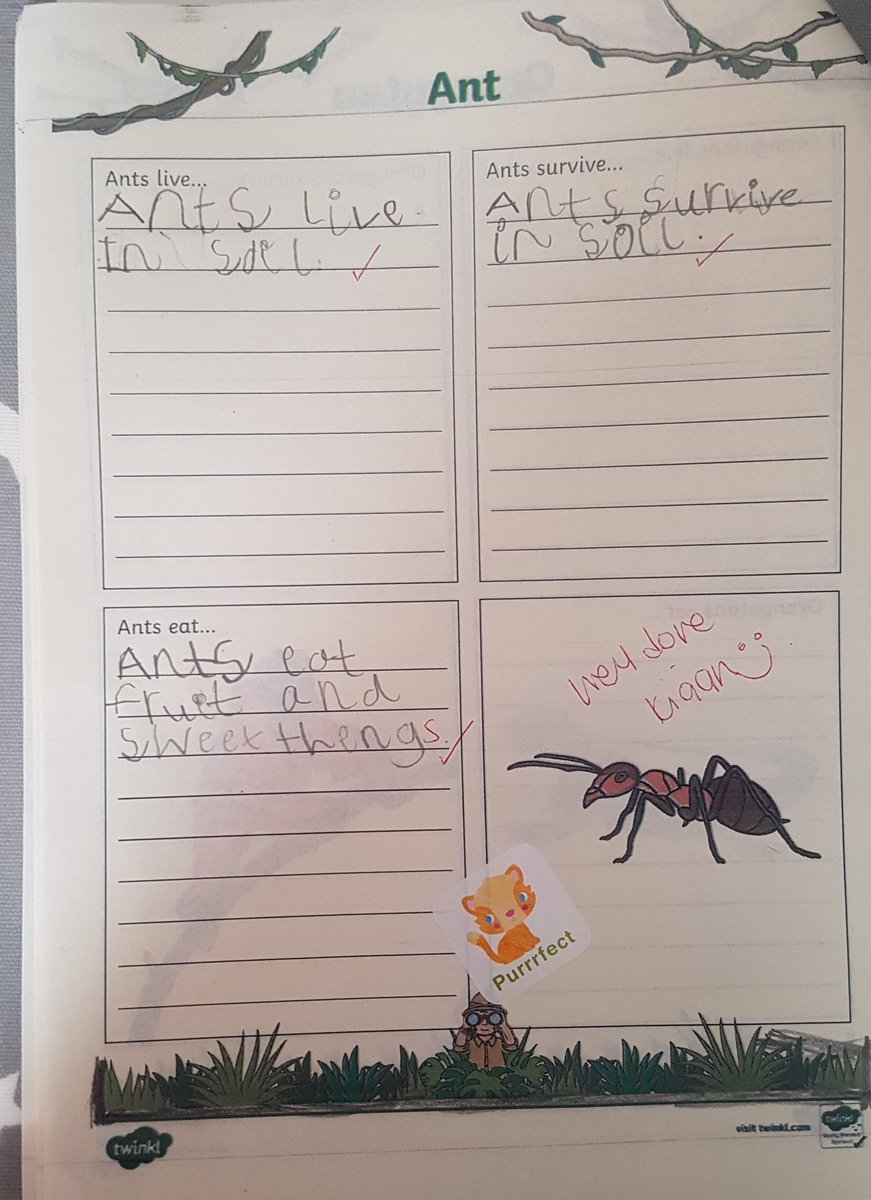 Ant
Ants live...
Ants live.
In soil.
Ants survive...
Ants survive
in soil.
Ants eat...
Ants eat
fruit and
sweet thengs.
well done
Kiaan
Purrrfect
twinkl
visit twinkl.com
twinkl